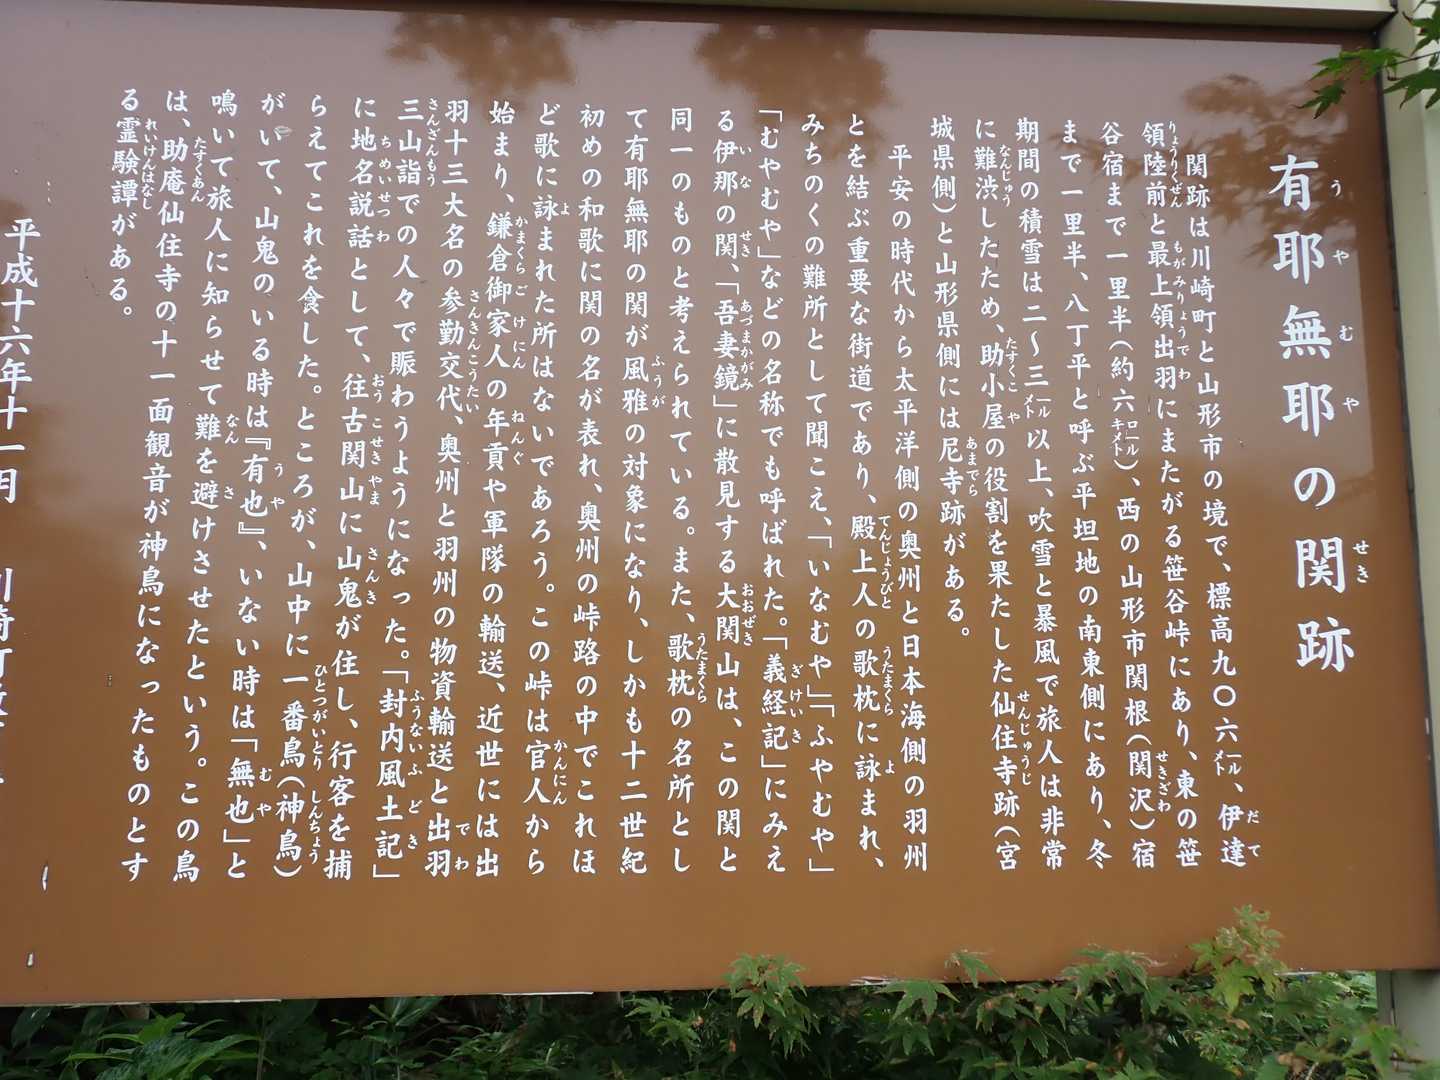 有耶無耶の関跡
関跡は川崎町と山形市の境で、標高九〇六メートル、伊達
領陸前と最上領出羽にまたがる笹谷峠にあり、東の笹
谷宿まで一里半（約六キロメートル）、西の山形市関根（関沢）宿
まで一里半、八丁平と呼ぶ平坦地の南東側にあり、冬
期間の積雪は二～三メートル以上、吹雪と暴風で旅人は非常
に難渋したため、助小屋の役割を果たした仙住寺跡（宮
城県側）と山形県側には尼寺跡がある。
平安の時代から太平洋側の奥州と日本海側の羽州
とを結ぶ重要な街道であり、殿上人の歌枕に詠まれ、
みちのくの難所として聞こえ、「いなむや」「ふやむや」
「むやむや」などの名称でも呼ばれた。「義経記」にみえ
る伊那の関、「吾妻鏡」に散見する大関山は、この関と
同一のものと考えられている。また、歌枕の名所とし
て有耶無耶の関が風雅の対象になり、しかも十二世紀
初めの和歌に関の名が表れ、奥州の峠路の中でこれほ
ど歌に詠まれた所はないであろう。この峠は官人から
始まり、鎌倉御家人の年貢や軍隊の輸送、近世には出
羽十三大名の参勤交代、奥州と羽州の物資輸送と出羽
三山詣での人々で賑わうようになった。「封内風土記」
に地名説話として、往古関山に山鬼が住し、行客を捕
らえてこれを食した。ところが、山中に一番鳥（神鳥）
がいて、山鬼のいる時は『有也』、いない時は「無也」と
鳴いて旅人に知らせて難を避けさせたという。この鳥
は、助庵仙住寺の十一面観音が神鳥になったものとす
る霊験譚がある。
平成十六年十一月